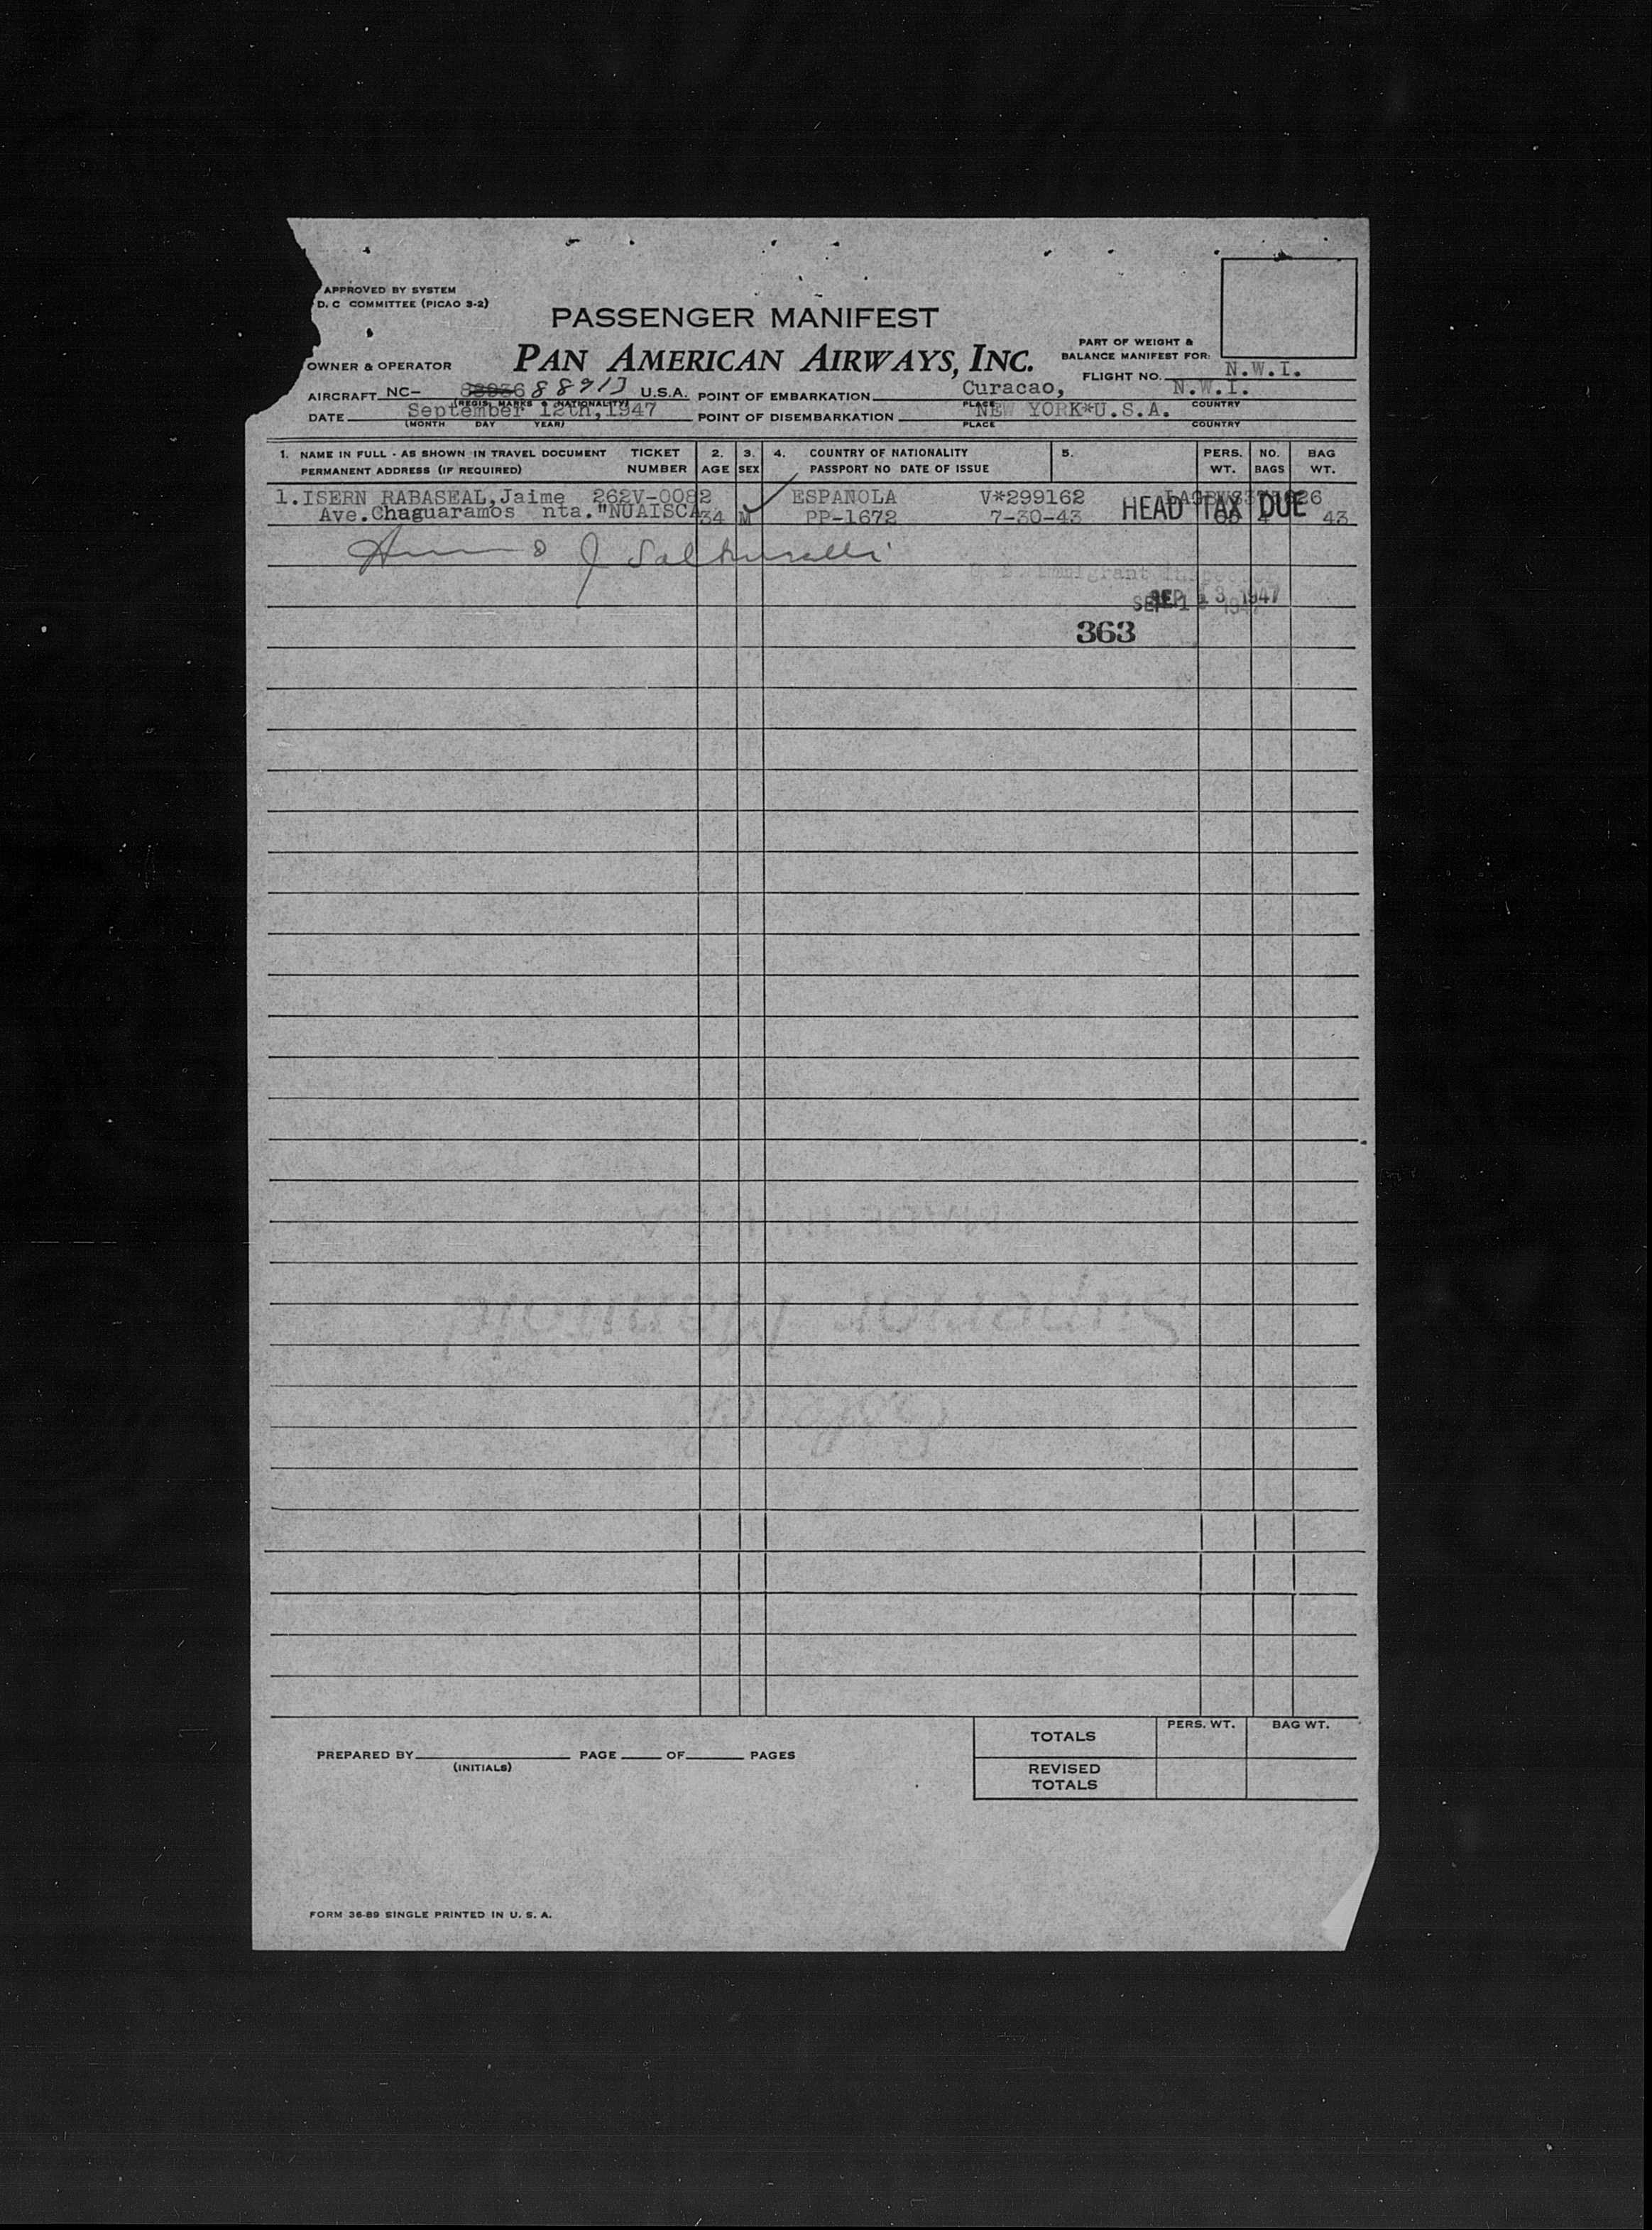 APPROVED BY SYSTEM
D. C COMMITTEE (PICAO 3-2)
PASSENGER MANIFEST
PAN AMERICAN AIRWAYS, INC.
PART OF WEIGHT &
BALANCE MANIFEST FOR:
OWNER & OPERATOR
FLIGHT NO. N.W.I.
AIRCRAFT NC- 88913 U.S.A. POINT OF EMBARKATION Curacao, N.W.I.
(REGIS. MARKS & NATIONALITY) PLACE COUNTRY
DATE September 12th,1947 POINT OF DISEMBARKATION NEW YORK*U.S.A.
(MONTH DAY YEAR) PLACE COUNTRY
1. NAME IN FULL - AS SHOWN IN TRAVEL DOCUMENT TICKET 2. 3. 4. COUNTRY OF NATIONALITY 5. PERS. NO. BAG
PERMANENT ADDRESS (IF REQUIRED) NUMBER AGE SEX PASSPORT NO DATE OF ISSUE WT. BAGS WT.
1.ISERN RABASEAL,Jaime 262V-0082 ESPAÑOLA V*299162
Ave.Chaguaramos nta."NUAISCA 34 M PP-1672 7-30-43 HEAD TAX DUE 43
U. S. Immigrant Inspector
SEP 13 1947
363
TOTALS PERS. WT. BAG WT.
PREPARED BY PAGE OF PAGES
(INITIALS)
REVISED
TOTALS
FORM 36-89 SINGLE PRINTED IN U. S. A.